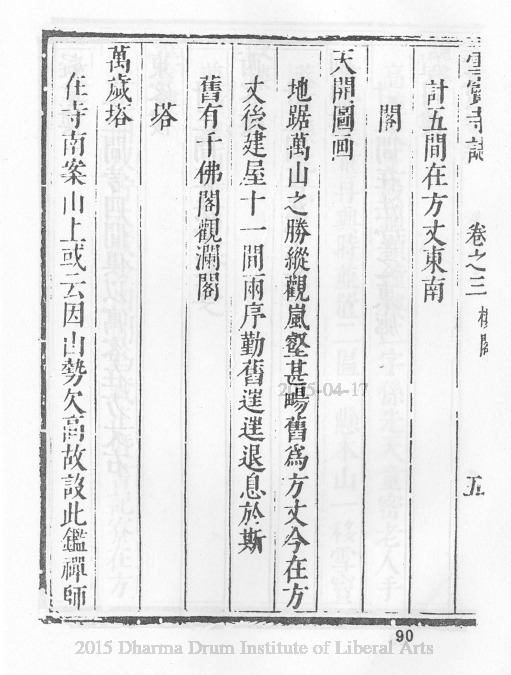 雪竇寺誌 卷之三 樓閣 五
計五間在方丈東南
閣
天開圖画
地踞萬山之勝縱觀嵐壑甚暢舊為方丈今在方
丈後建屋十一間兩序勤舊往往退息於斯
舊有千佛閣觀瀾閣
塔
萬歲塔
在寺南案山上或云因山勢欠高故設此鑑禪師
90
2015-04-17
2015 Dharma Drum Institute of Liberal Arts